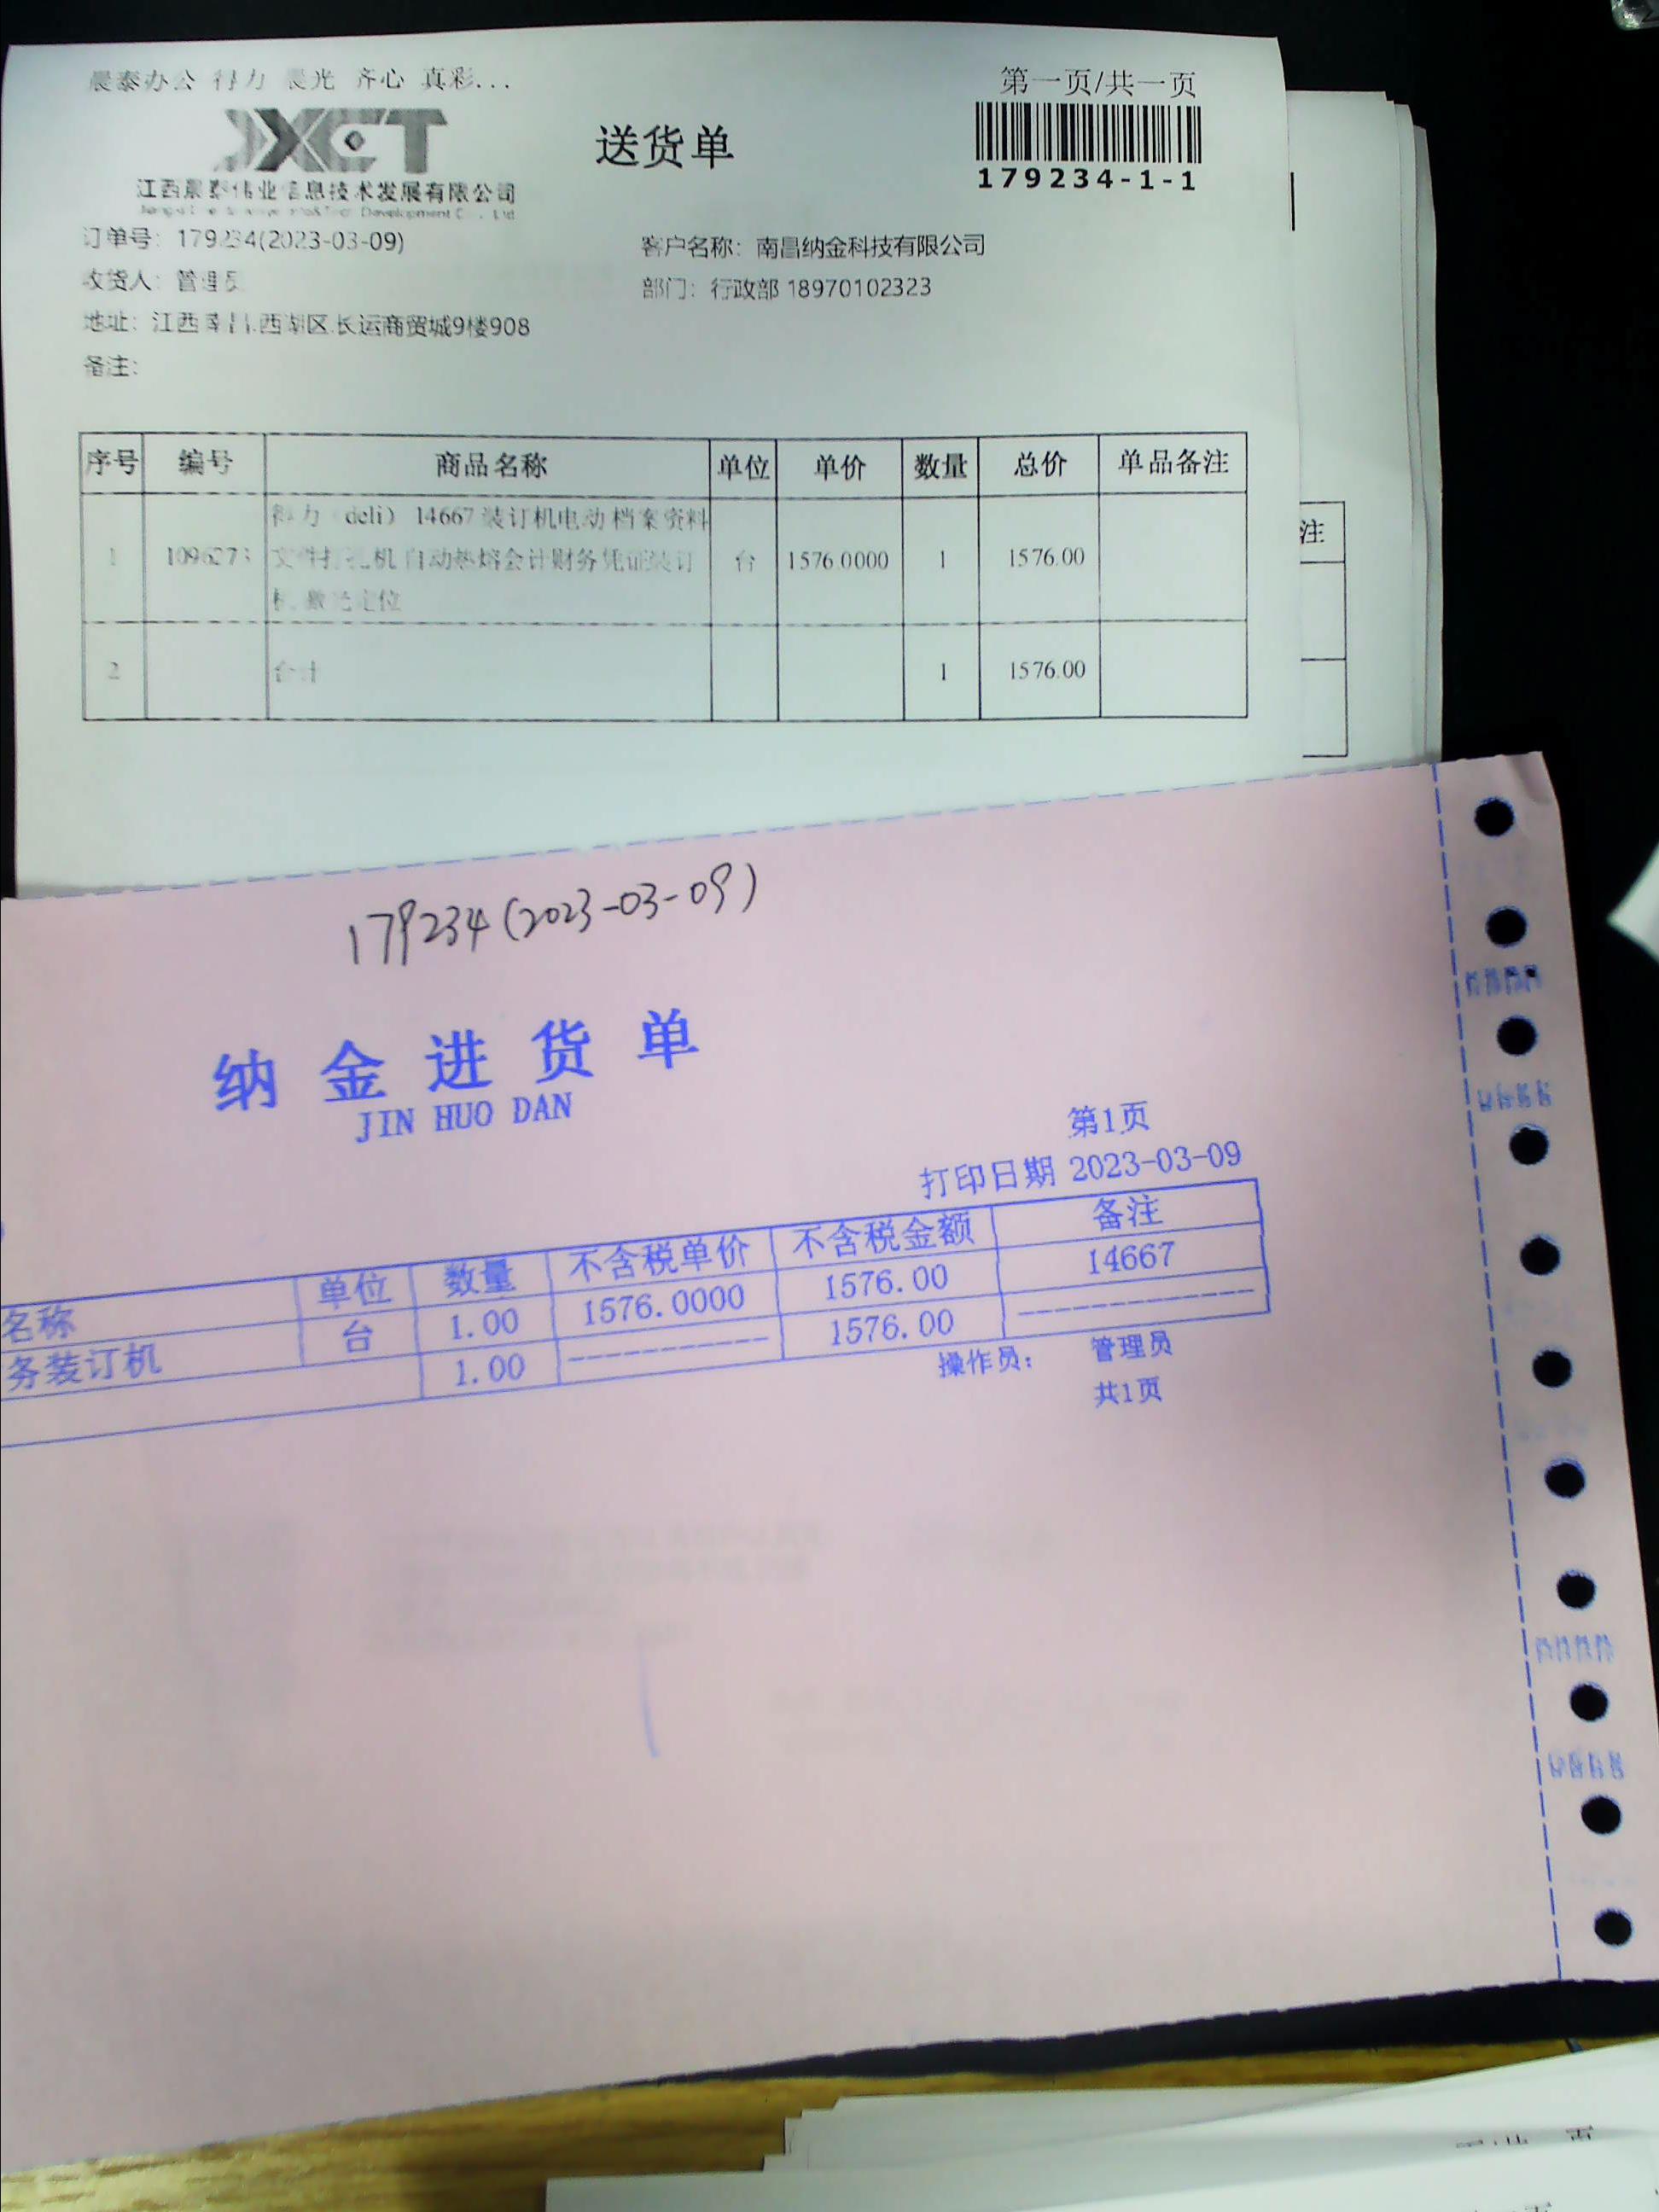 晨泰办公 得力 晨光 齐心 真彩...
第一页/共一页
JXCT
送货单
179234-1-1
江西晨泰伟业信息技术发展有限公司
订单号：179234(2023-03-09)
客户名称：南昌纳金科技有限公司
收货人：管理员
部门：行政部 18970102323
地址：江西南昌西湖区长运商贸城9楼908
备注：
序号 编号 商品名称 单位 单价 数量 总价 单品备注
得力（deli）14667装订机电动档案资料
1 1096273 文件打孔机 自动热熔会计财务凭证装订 台 1576.0000 1 1576.00
机 激光定位
2 合计 1 1576.00
注
179234(2023-03-09)
纳金进货单
JIN HUO DAN
第1页
打印日期 2023-03-09
名称 单位 数量 不含税单价 不含税金额 备注
务装订机 台 1.00 1576.0000 1576.00 14667
1.00 ---------- 1576.00 ------------
操作员： 管理员
共1页